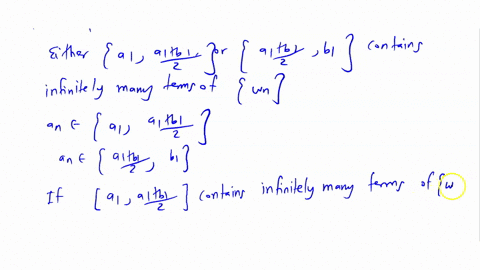 Either { a1, a1+b1/2 } or { a1+b1/2, b1 } contains
infinitely many terms of { wn }
an ∈ { a1, a1+b1/2 }
an ∈ { a1+b1/2, b1 }
If [ a1, a1+b1/2 ] contains infinitely many terms of { w